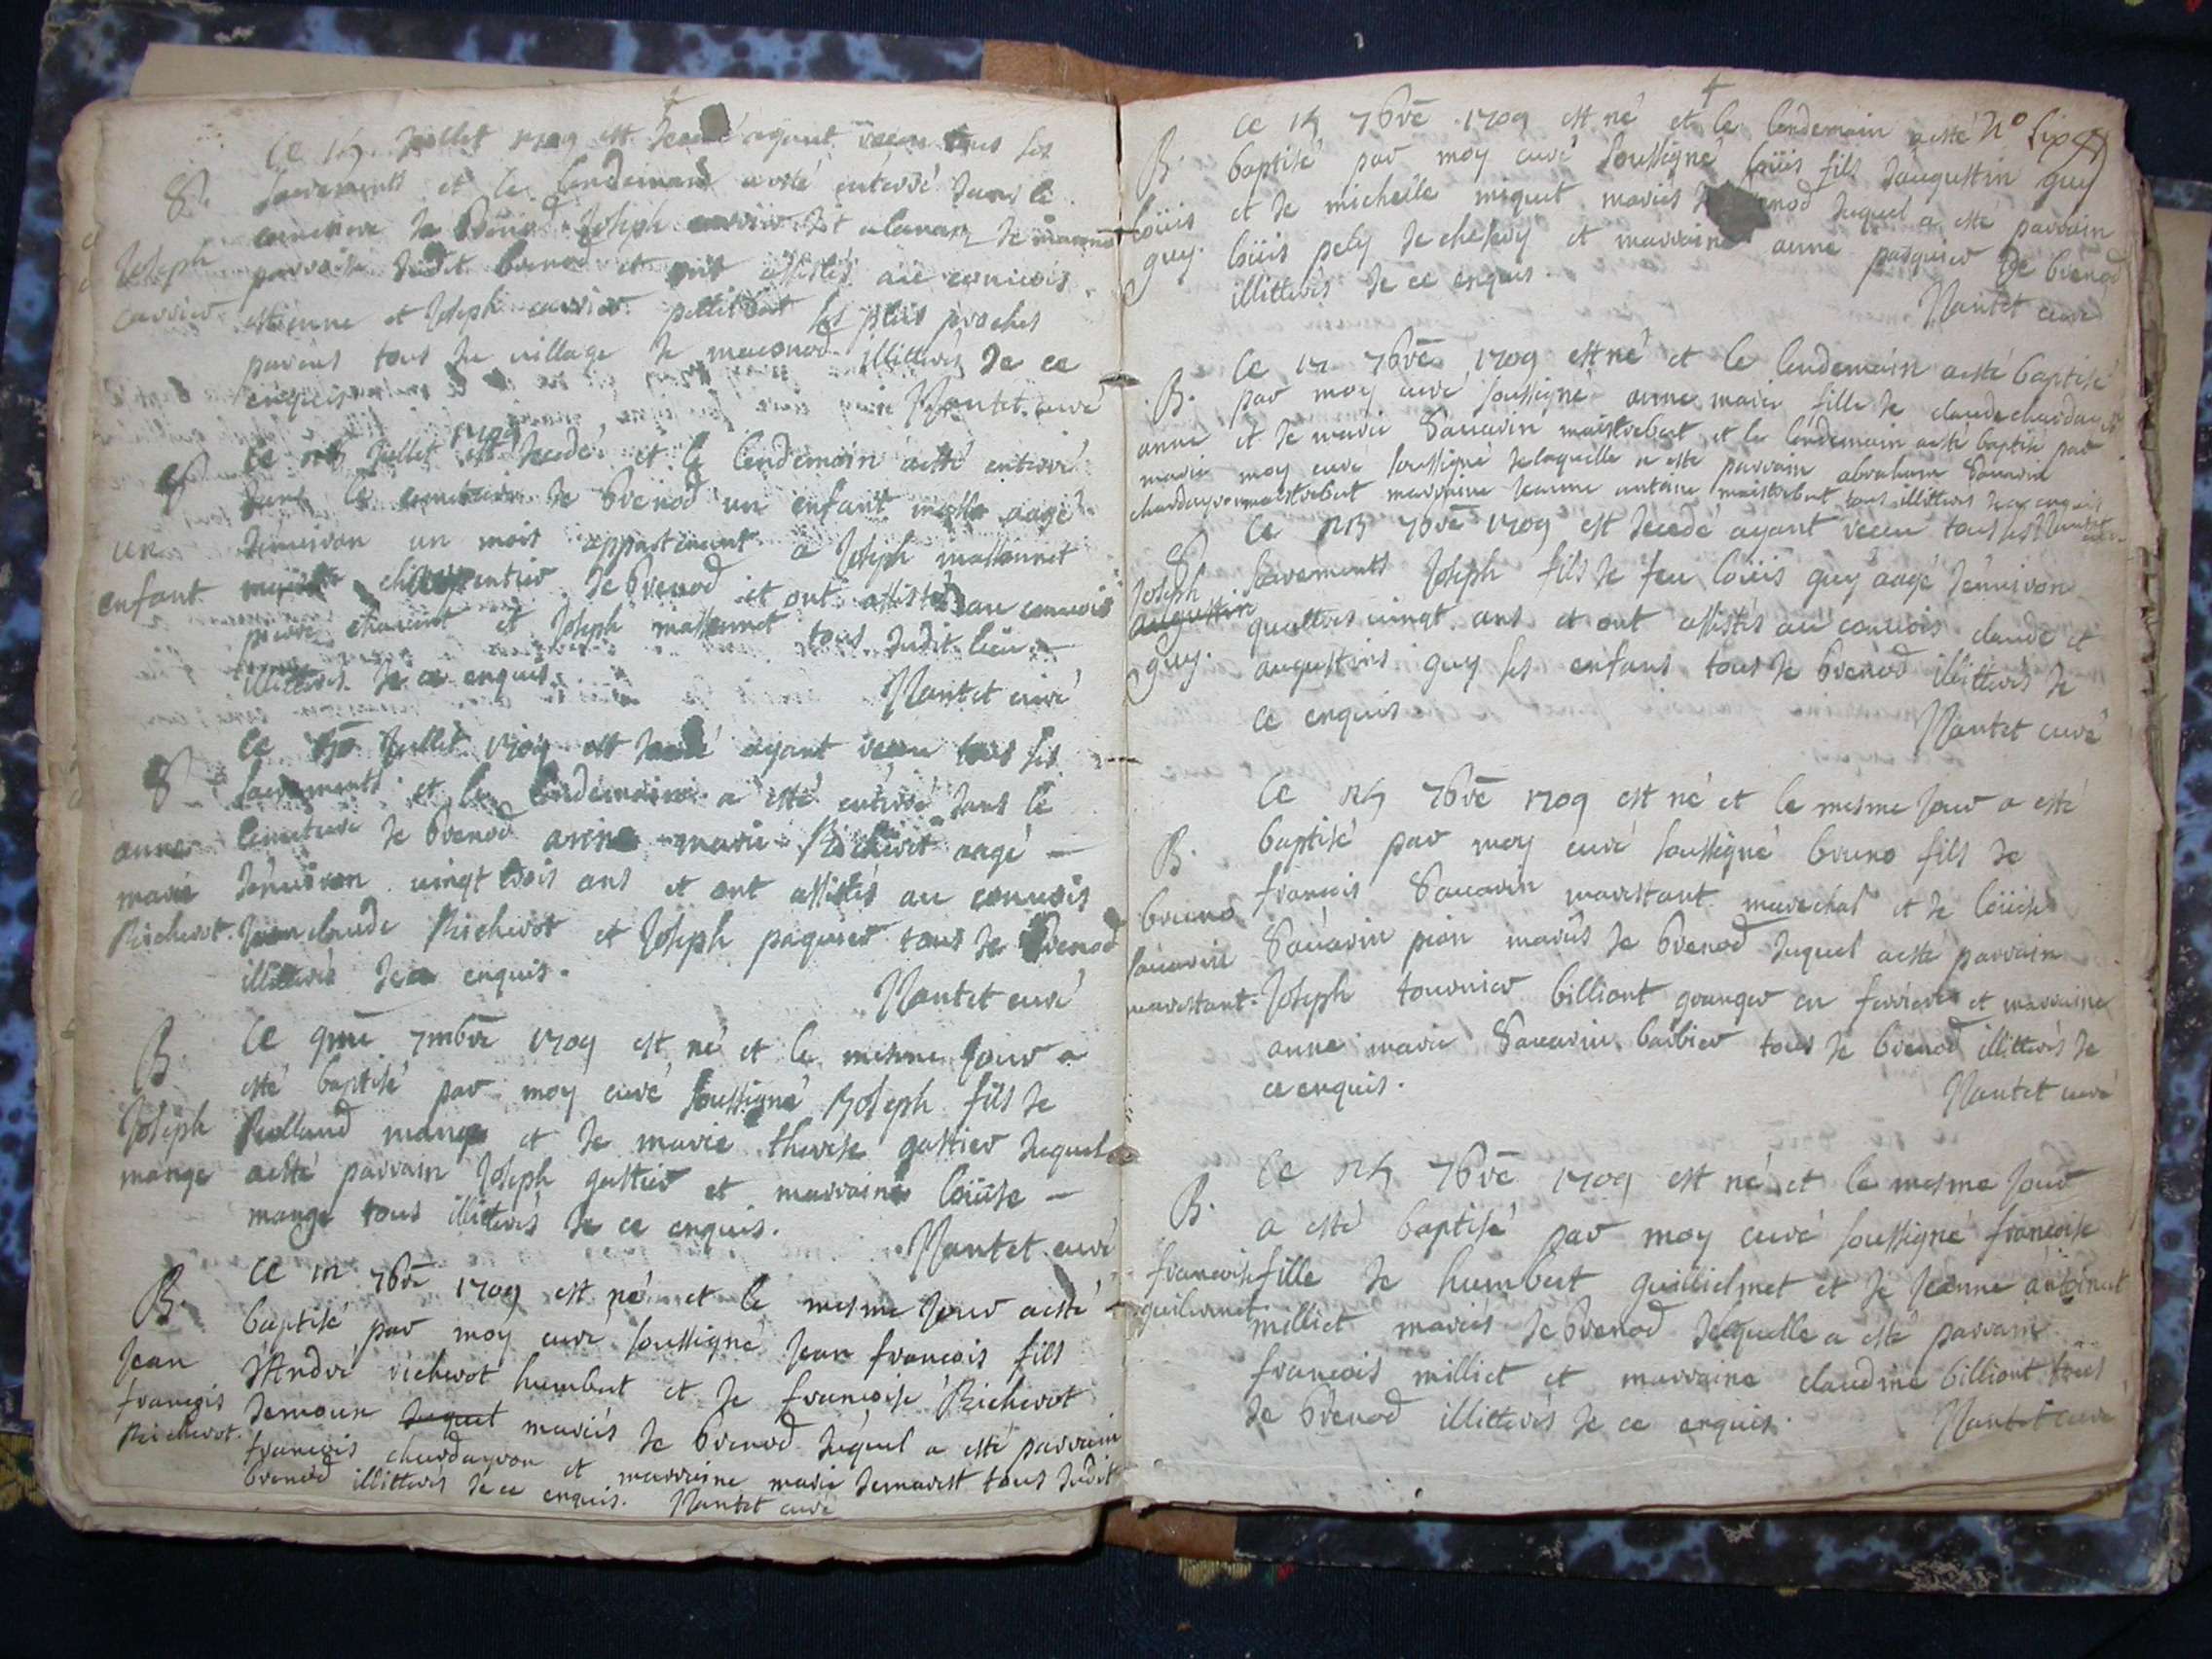 Ce juillet 1709 est decedé ayant receu tous ses
S. sacrements et le lendemain a esté enterré dans le
Joseph cimetiere de Brenod Joseph carrier dit
carrier parroisse dudit brenod et ont assistés au convois
estienne et Joseph carrier les plus proches
parens tous du village de illitterés de ce
enquis Nantet curé
S. Ce juillet 1709 est decedé et le lendemain a esté enterré
dans le cimetiere de brenod un enfant masle aagé
un d'environ un mois appartenant a Joseph massonnet
enfant charpentier de brenod et ont assistés au convois
pierre et Joseph massonnet tous dudit lieu
illitterés de ce enquis.
Nantet curé
Ce juillet 1709 est decedé ayant receu tous ses
S. sacrements et le lendemain a esté enterré dans le
anne cimetiere de brenod anne marie Richerot aagé
marie d'environ vingt trois ans et ont assistés au convois
Richerot. Jean claude Richerot et Joseph paquier tous de brenod
illitterés de ce enquis.
Nantet curé
B. Ce 9me 7mbre 1709 est né et le mesme jour a
esté baptisé par moy curé soussigné Joseph fils de
Joseph Rolland mange et de marie therese gottier duquel
mange a esté parrain Joseph gottier et marraine loüise
mange tous illitterés de ce enquis.
Nantet curé
B. Ce 7bre 1709 est né et le mesme jour a esté
baptisé par moy curé soussigné Jean francois fils
Jean d'André richerot humbert et de francoise Richerot
francois duquel mariés de brenod duquel a esté parrain
Richerot. francois chardeyron et marraine marie demarest tous dudit
brenod illitterés de ce enquis. Nantet curé
Ce 7bre 1709 est né et le lendemain a esté N° Six
B. baptisé par moy curé soussigné loüis fils d'augustin guy
loüis et de michelle miguet mariés duquel a esté parrain
guy. loüis pely de chesery et marraine anne pasquier de brenod
illitterés de ce enquis.
Nantet curé
Ce 7bre 1709 est né et le lendemain a esté baptisé
B. par moy curé soussigné anne marie fille de claude
anne et de marie Savarin maistrebert et le lendemain a esté baptisé par
marie moy curé soussigné de laquelle a esté parrain abraham Savarin
maistrebert marraine Jeanne antoine maistrebert tous illitterés de ce enquis
Nantet
Ce 7bre 1709 est decedé ayant receu tous ses
S. sacrements Joseph fils de feu loüis guy aagé d'environ
Joseph augustin quattres vingt ans et ont assistés au convois claude et
guy. augustins guy ses enfans tous de brenod illitterés de
ce enquis
Nantet curé
Ce 7bre 1709 est né et le mesme jour a esté
B. baptisé par moy curé soussigné bruno fils de
bruno francois Savarin marestant marechal et de loüise
savarin Savarin pion mariés de brenod duquel a esté parrain
marestant. Joseph tournier billiont granger en et marraine
anne marie Savarin barbier tous de brenod illitterés de
ce enquis.
Nantet curé
Ce 7bre 1709 est né et le mesme jour
B. a esté baptisé par moy curé soussigné francoise
francoise fille de humbert guillielmet et de Jeanne
guilermet. milliet mariés de brenod de laquelle a esté parrain
francois milliet et marraine claudine billiont tous
de brenod illitterés de ce enquis.
Nantet curé